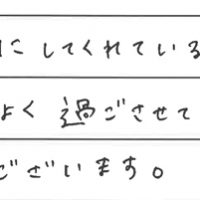 にしてくれている
よく過ごさせて
ございます。